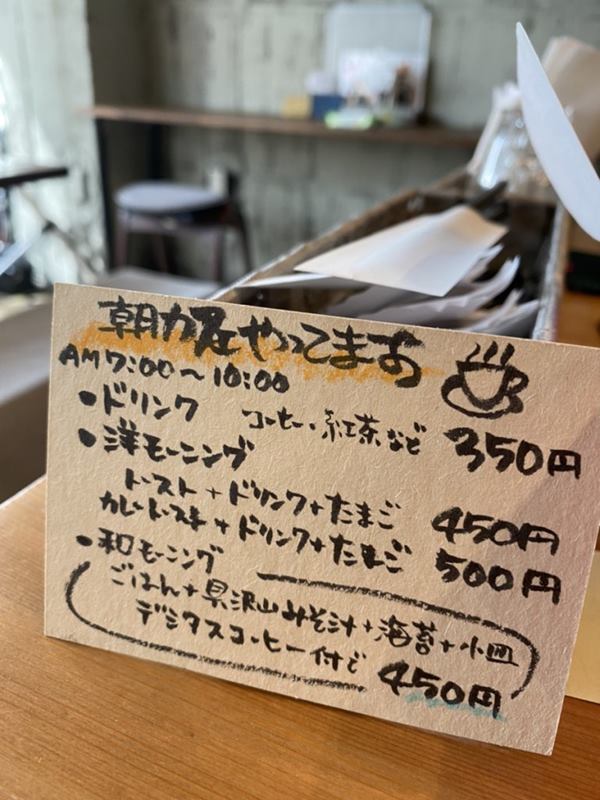 朝カフェやってます
AM7:00〜10:00
・ドリンク コーヒー・紅茶など 350円
・洋モーニング
トースト+ドリンク+たまご 450円
カレートースト+ドリンク+たまご 500円
・和モーニング
ごはん+具沢山みそ汁+海苔+小皿
デミタスコーヒー付で 450円